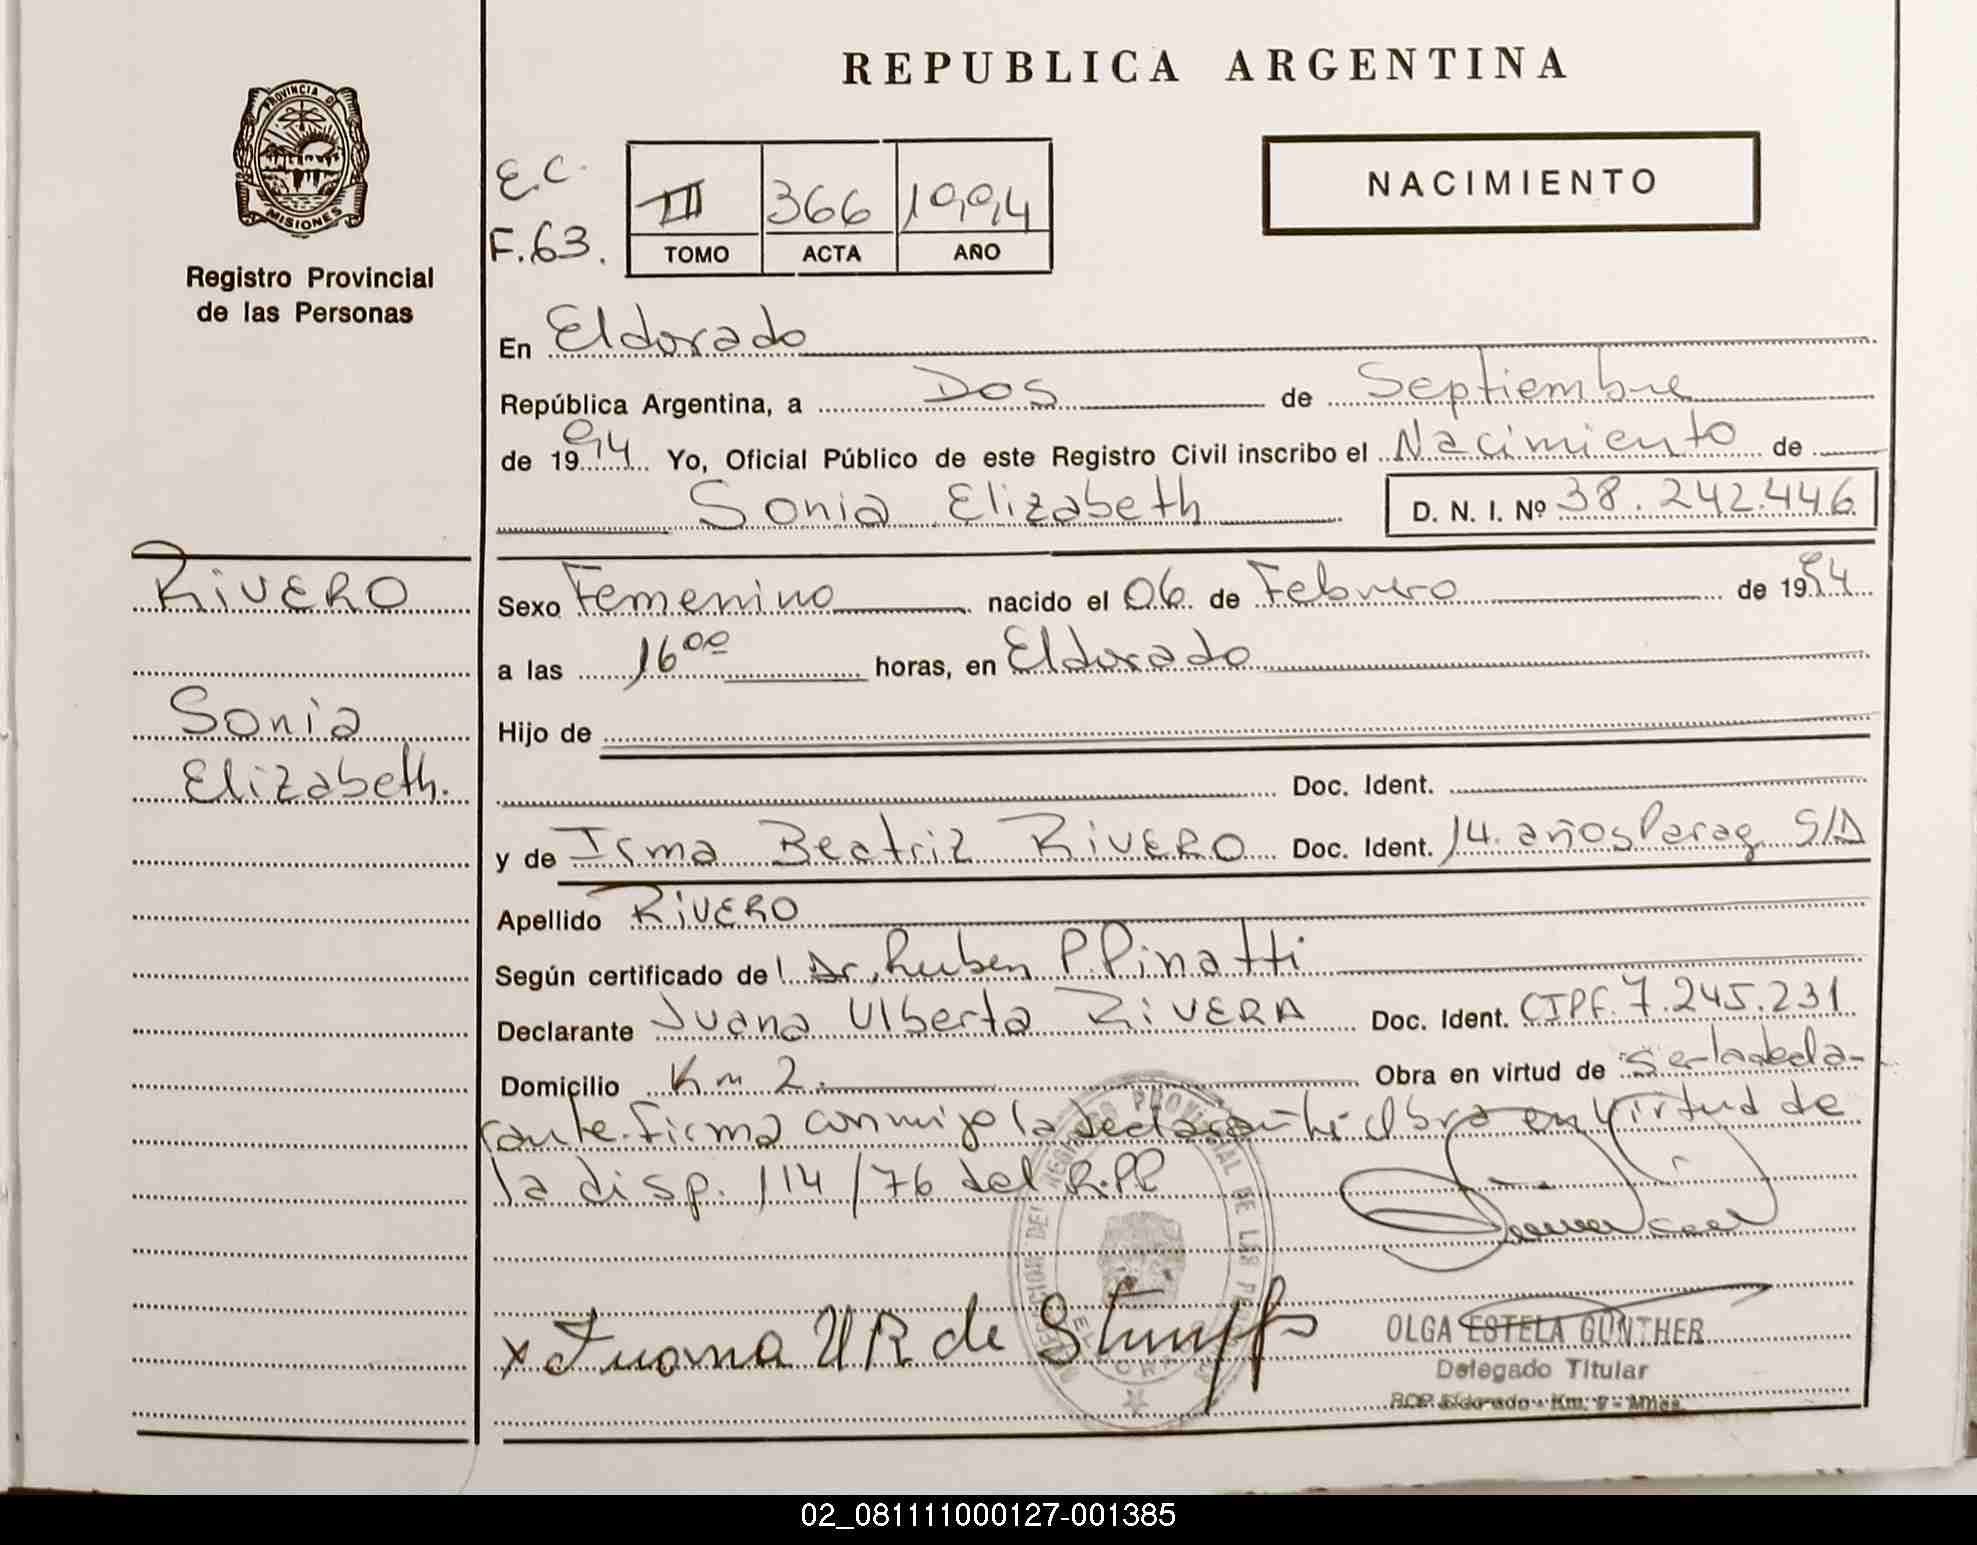 REPUBLICA ARGENTINA
PROVINCIA DE
MISIONES
Registro Provincial
de las Personas
E.C.
F.63.
III 366 1994
TOMO ACTA AÑO
NACIMIENTO
En Eldorado
República Argentina, a Dos de Septiembre
de 1994 Yo, Oficial Público de este Registro Civil inscribo el Nacimiento de
Sonia Elizabeth D. N. I. Nº 38.242.446
RIVERO
Sonia
Elizabeth.
Sexo Femenino nacido el 06 de Febrero de 1994
a las 16 00 horas, en Eldorado
Hijo de
Doc. Ident.
y de Irma Beatriz RIVERO Doc. Ident. 14 años Parag. S/D
Apellido RIVERO
Según certificado de Dr. Ruben P. Pinatti
Declarante Juana Ulberta RIVERA Doc. Ident. CIPF. 7.245.231
Domicilio Km 2. Obra en virtud de ser la decla-
rante. Firma conmigo la declarante. Obra en virtud de
la disp. 114/76 del R.PP
x Juana U R de Stumpfs
OLGA ESTELA GUNTHER
Delegado Titular
RCP. Eldorado - Km. 9 - Mnes.
02_081111000127-001385